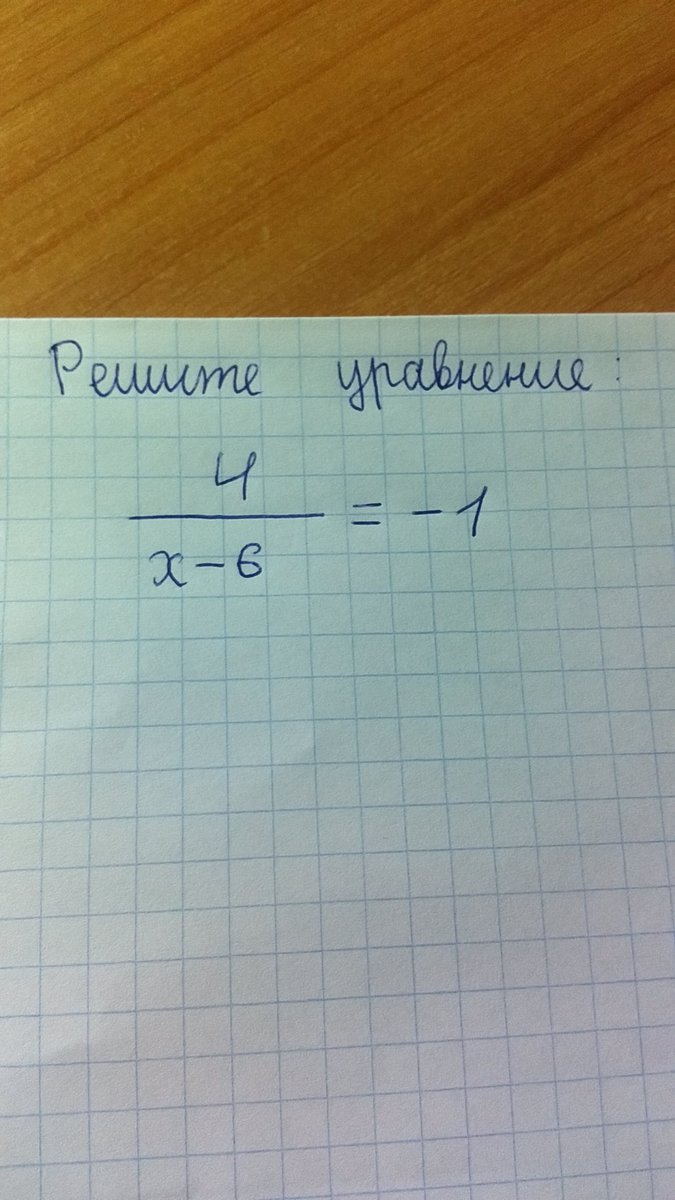 Решите уравнение:
4
—— = -1
x-6